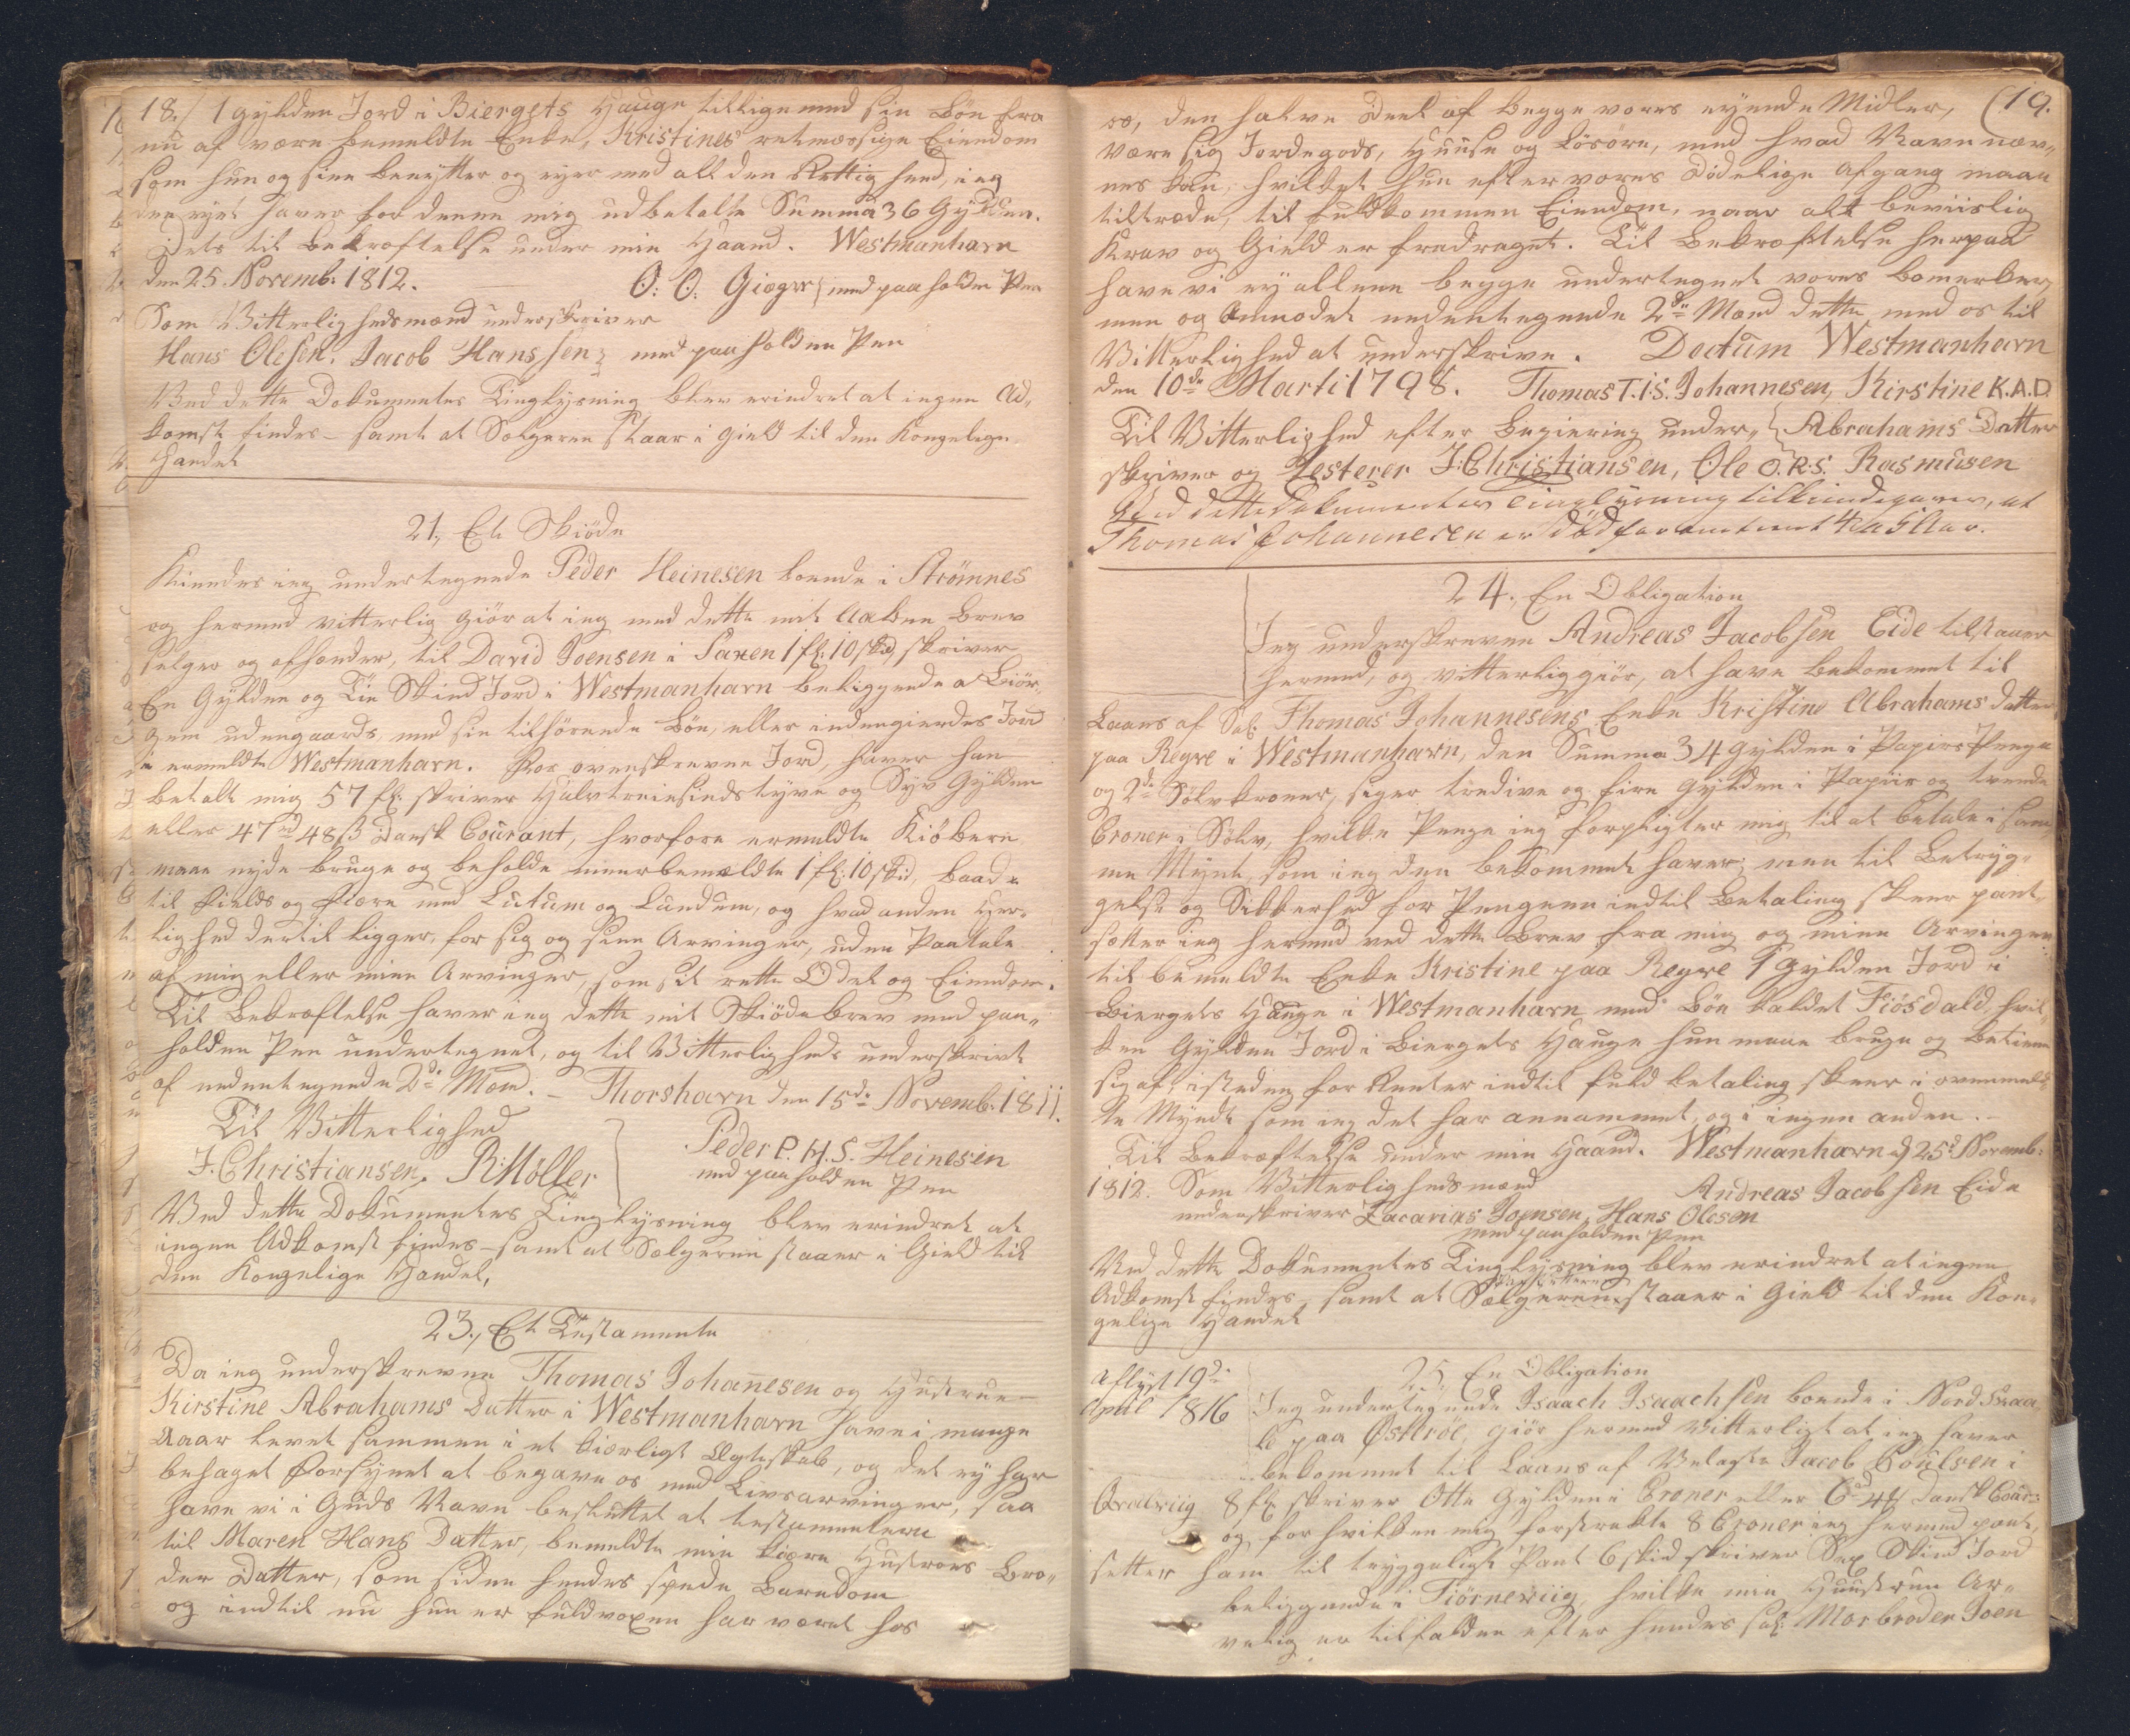 18./ 1 Gylden Jord i Biergets Hauge tilligemed sin Bøn fra
nu af være bemeldte Enke, Kristines retmæssige Eiendom
som hun og sine benytter og eyer med all den Rettighed, ieg
den eyet haver for denne mig udbetalte Summa 36 Gylden.
Dets til Bekræftelse under min Haand. Westmanhavn
den 25 Novemb: 1812. O: O: Giæger med paaholden Pen
Som Vitterligheds mænd underskriver
Hans Olesen. Jacob Hanssen med paaholden Pen
Ved dette Dokuments Tinglysning blev erindret at ingen Ad„
komst findes – samt at Sælgeren staar i Gield til den Kongelige
Handel
21., Et Skiøde
Kiendes ieg undertegnede Peder Heinesen boende i Strømnes
og hermed vitterlig giør at ieg med dette mit aabne Brev
selger og afhænder, til David Joensen i Saxen 1 fl: 10 skd, skriver
En Gylden og Tie Skind Jord i Westmanhavn beliggende a Biør„
gem udengaards, med sin tilhørende Bøn, eller indengierdes Jord
i ermeldte Westmanharn. For ovenskrevne Jord, haver han
betalt mig 57 fl: skriver Halvtreiesindstyve og Syv Gylden
eller 47 rd 48 ß Dansk Courant, hvorfore ermeldte Kiøbere
maae nyde bruge og beholde immerbemældte 1 fl: 10 skd, baade
til Fields og Fiære med Lutum og Lundum, og hvad anden Her„
lighed dertil ligger, for sig og sine Arvinger, uden Paatale
af mig eller mine Arvinger, som sit rette Odel og Eiendom.
Til Bekræftelse haver ieg dette mit Skiødebrev med paa„
holden Pen undertegnet, og til Vitterligheds underskrivt
af nedentegnede 2de Mænd. – Thorshavn den 15de Novemb: 1811.
Til Vitterlighed
J. Christiansen. R: Møller
Peder P. H. S. Heinesen
med paaholden Pen
Ved dette Dokumentes Tinglysning blev erindret at
ingen Adkomst findes – samt at Sælgeren staaer i Gield til
den Kongelige Handel,
23., Et Testamente
Da ieg underskrevne Thomas Johanesen og Hustrue –
Kirstine Abrahams Datter i Westmanharn have i mange
Aaar levet sammen i et kiærligt Ægteskab, og det ey har
behaget Forsynet at begave os med Livsarvinger, saa
have vi i Guds Navn besluttet at testamentere
til Maren Hans Datter, bemeldte min kiære Hustrues Bro„
der Datter, som siden hendes spede Barndom
og indtil nu hun er fuldvoxen har været hos
(19.
os, den halve Deel af begge vores eyende Midler,
være sig Jordegods, Huuse og Løsøre, med hvad Navn næv„
nes kan, hvilket hun efter vores dødelige Afgang maae
tiltræde, til fuldkommen Eiendom, naar alt beviislig
Krav og Gield er fradraget. Til Bekræftelse herpaa
have vi ey allene begge undertegnet vores bomerker
men og Anmodet nedentegnede 2de Mænd dette med os til
Vitterlighed at underskrive. Dactum Westmanhavn
den 10de Marti 1798. Thomas T.I.S. Johannesen, Kirstine K.A.D.
Til Vitterlighed efter Begiering under„ Abrahams Datter
skriver og Testerer J: Christiansen, Ole O.R.S. Rasmusen
Ved dette Dokumentes Tinglysning tilkiendegaves, at
Thomas Johannesen er død for omtrent 4 a 5 Aar.
24., En Obligation
Jeg underskrevne Andreas Jacobsen Eide tilstaaer
hermed, og vitterliggiør, at have bekommet til
Laans af Sal: Thomas Johannesens Enke Kristine Abrahams datter
paa Regve i Westmanharn, den Summa 34 Gylden i Papirs Penge
og 2de Sølvkroner, siger tredive og fire Gylden i Papiir og tvende
Croner i Sølv, hvilke Penge ieg forpligter mig til at betale i sam„
me Mynt, som ieg den bekommet haver; men til Betryg„
gelse og Sikkerhed for Pengene indtil Betaling skeer pant„
sætter ieg hermed ved dette Brev fra mig og mine Arvinger
til bemeldte Enke Kristine paa Regve 1 Gylden Jord i
Biergets Hauge i Westmanharn med Bøn kaldet Fiøsdald, hvil„
ken Gylden Jord i Biergets Hauge hun maae bruge og betiene
sig af, isteden for Renter indtil fuld betaling skeer i ovenmeld„
te Myndt som ieg det har annammet, og i ingen anden. –
Til Bekræftelse under min Haand. Westmanharn d 25d Novemb:
1812. Som Vitterligheds mænd Andreas Jacobsen Eide
underskriver Zacarias Joensen, Hans Olesen
med paaholden Pen
Ved dette Dokumentes Tinglysning blev erindret at ingen
Adkomst findes, samt at Sælgeren staaer i Gield til den Kon„
gelige Handel
Aflyst 19d:
April 1816
25 En Obligation
Jeg undertegnede Isaach Isaachsen boende i Nord Skaa„
le paa Østerøe, giør hermed vitterligt at ieg haver
bekommet til Laans af Velagte Jacob Poulsen i
Qvalviig 8 fl: skriver Otte Gylden i Croner eller 6 rd 4 ß Dansk Cour:
og for hvilken mig forstrakte 8 Croner ieg hermed pant„
setter ham til tryggeligt Pant 6 skd skriver Sex Skind Jord
beliggende i Tiørneviig, hvilke min Huustrue Ar„
velig er tilfalden efter hendes sal: Morbroder Joen